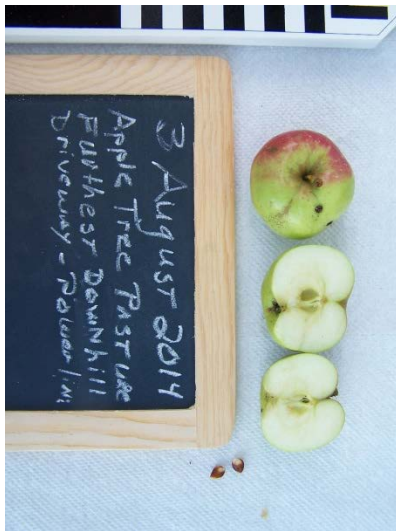 3 August 2014
Apple Tree Pasture
Furthest Downhill
Driveway - Powerlin